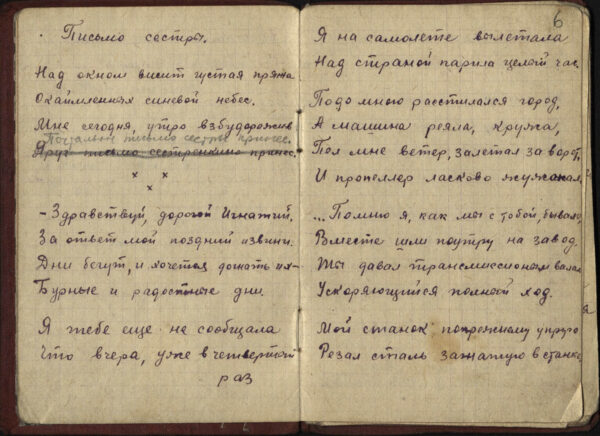 Письмо сестры.
Над окном висит густая пряжа
Окаймленная синевой небес.
Мне сегодня, утро взбудоражив
Почтальон письмо сестры принес.
Друг письмо сестренкино принес.
х х
х
- Здравствуй, дорогой Игнатий,
За ответ мой поздний извини.
Дни бегут, и хочется догнать их-
Бурные и радостные дни.
Я тебе еще не сообщала
Что вчера, уже в четвертый
раз
6
Я на самолете вылетала
Над страной парила целый час.
Подо мною расстилался город,
А машина реяла, кружа,
Пел мне ветер, залетал за ворот,
И пропеллер ласково жужжал.
...Помню я, как мы с тобой, бывало,
Вместе шли поутру на завод.
Ты давал трансмиссионным валам
Ускоряющийся полный ход.
Мой станок попрежнему упруго
Резал сталь зажатую в станке,